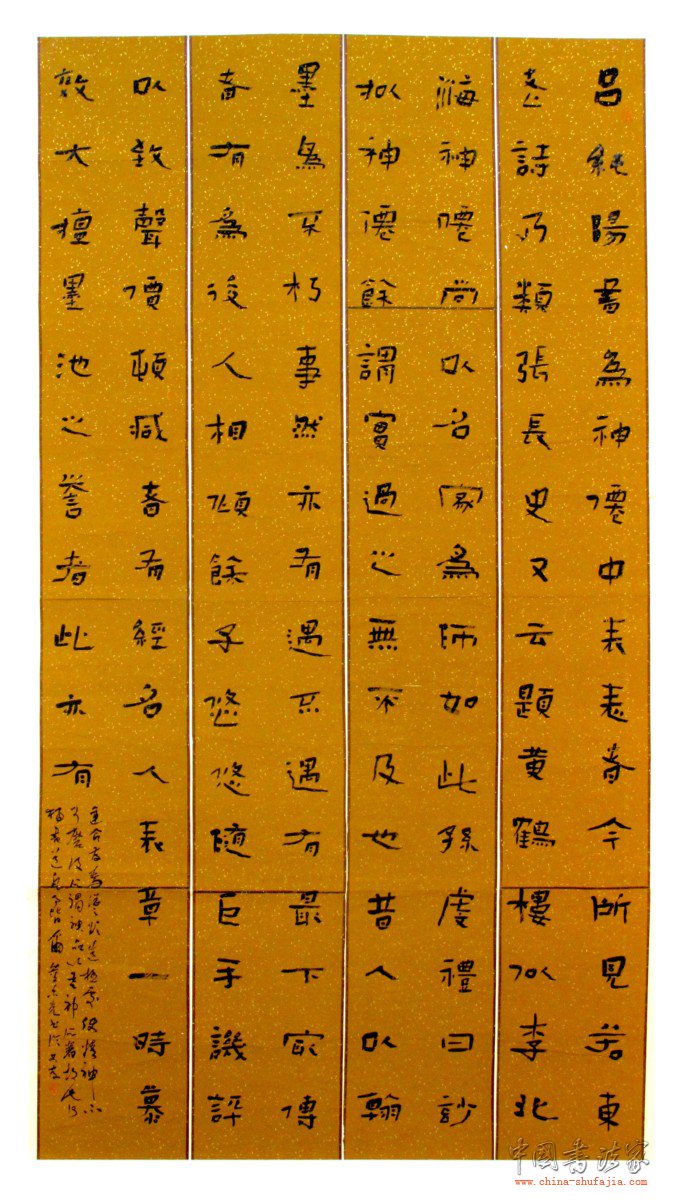 呂純陽書為神僊中表表者今所見若東
老詩乃類張長史又云題黄鶴樓似李北
海神僊尚以名家為師如此孫虔禮曰妙
擬神僊餘謂實過之無不及也昔人以翰
墨為不朽事然亦有遇不遇有最下家傳
者有為後人相傾餘子悠悠隨巨手譏評
以致聲價頓减者有經名人表章一時慕
敩大擅墨池之譽者此亦有
中国书法家
www.china-shufajia.com